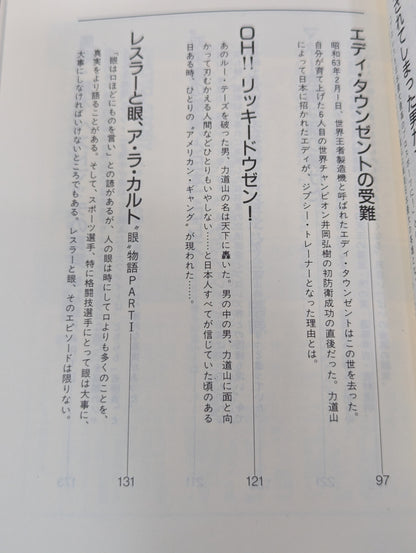 れてしまった
エディ・タウンゼントの受難
昭和63年2月1日、世界王者製造機と呼ばれたエディ・タウンゼントはこの世を去った。
自分が育て上げた6人目の世界チャンピオン井岡弘樹の初防衛成功の直後だった。力道山
によって日本に招かれたエディが、ジプシー・トレーナーとなった理由とは。
97
OH!! リッキードウゼン!
あのルー・テーズを破った男、力道山の名は天下に轟いた。男の中の男、力道山に面と向
かって刃むかえる人間などひとりもいやしない……と日本人すべてが信じていた頃のある
日ある時、ひとりの〝アメリカン・ギャング〟が現われた……。
121
レスラーと眼、ア・ラ・カルト〝眼〟物語PARTⅠ
「眼は口ほどにものを言い」との諺があるが、人の眼は時にして口よりも多くのことを、
真実をより語ることがある。そして、スポーツ選手、特に格闘技選手にとって眼は大事に、
大事にしなければいけないところでもある。レスラーと眼、そのエピソードは限りない。
131